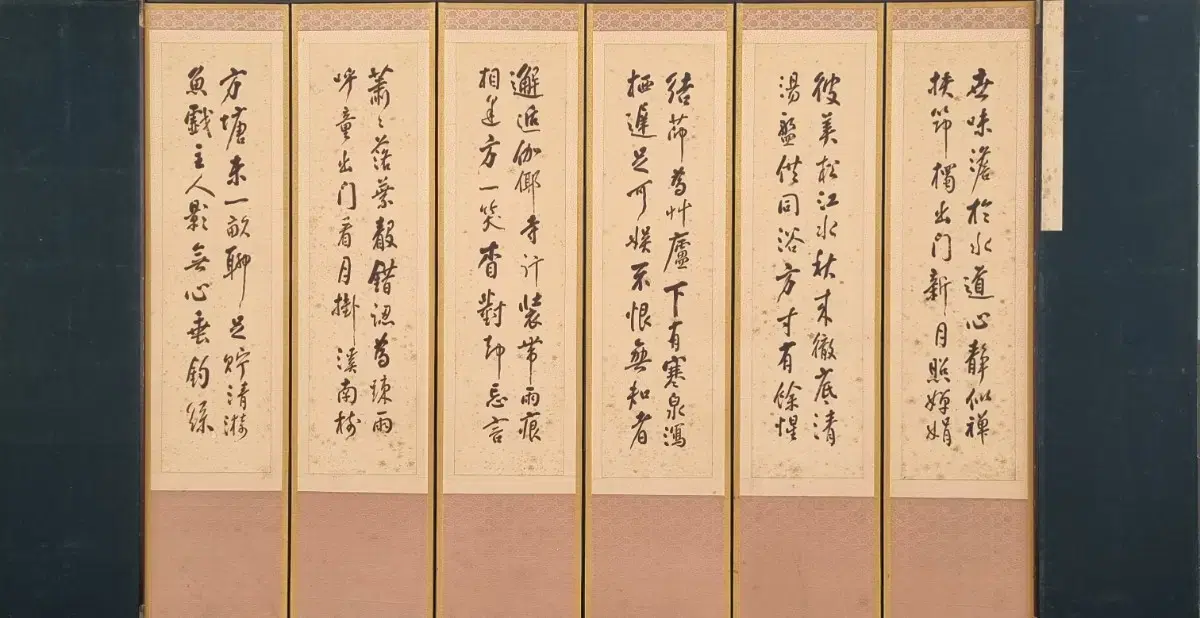 世味澹於水道心靜似禪
扶筇獨出门新月照嬋娟
彼美松江水秋來徹底清
湯盤供同浴方寸有餘惺
結茆為艸廬下有寒泉瀉
栖遲足可娛不恨無知者
邂逅伽倻寺行裝帶雨痕
相逢方一笑相對却忘言
蕭〻落葉聲錯認為疎雨
呼童出门看月掛溪南樹
方塘未一畝聊足貯清漪
魚戲主人影無心垂釣絲